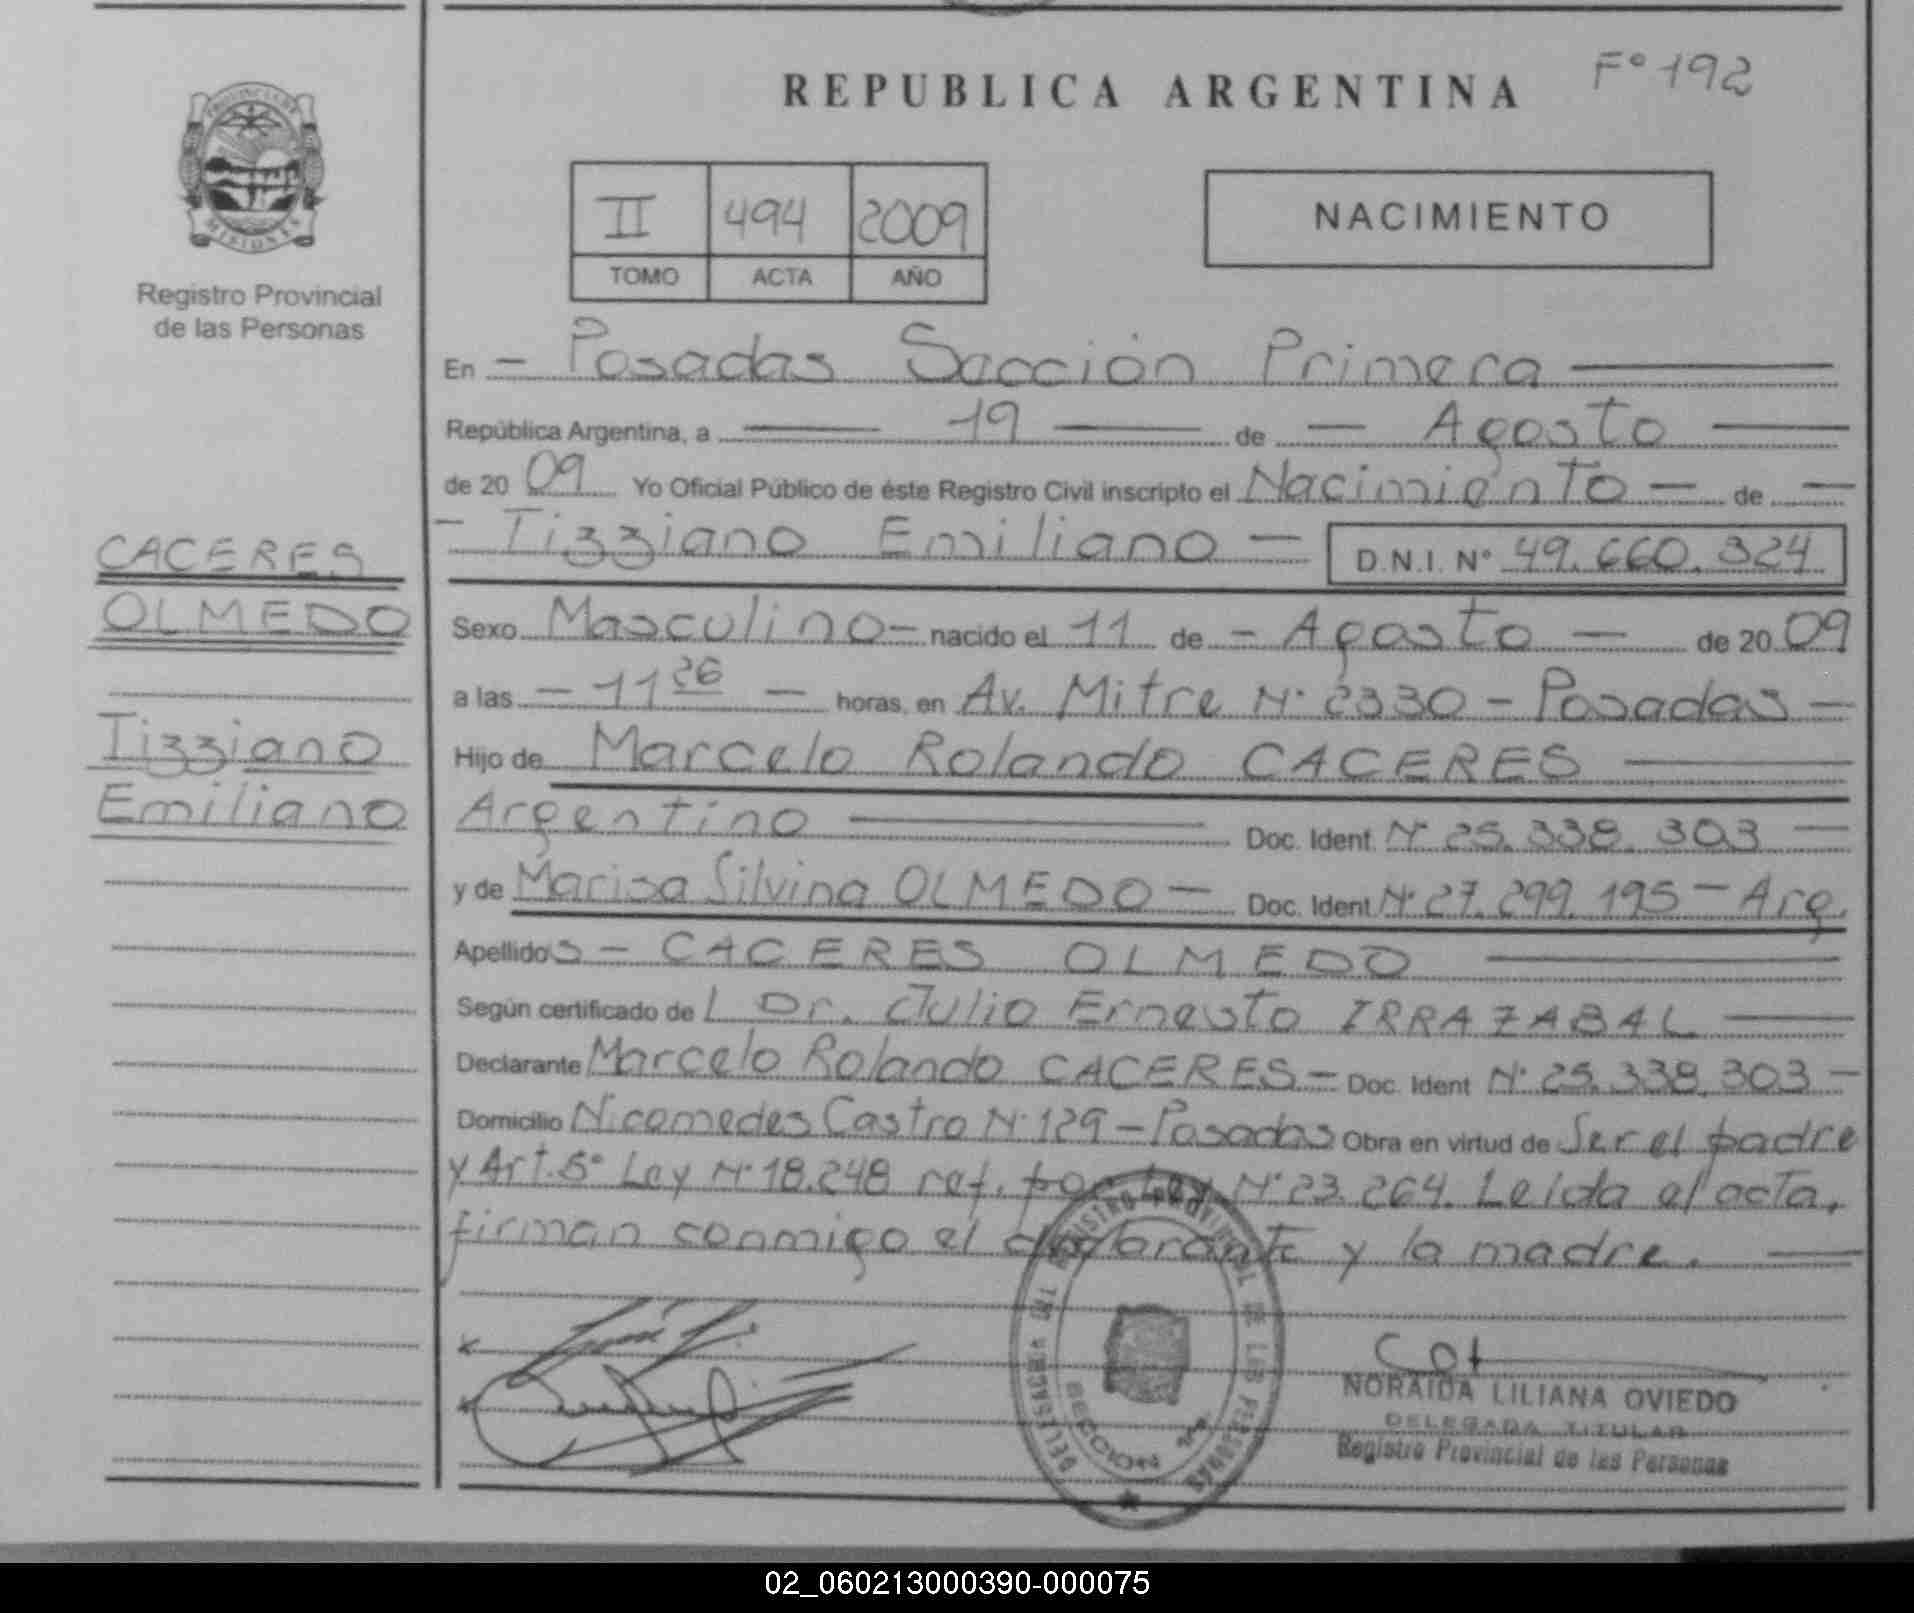 REPUBLICA ARGENTINA
Fº 192
PROVINCIA DE
MISIONES
Registro Provincial
de las Personas
II 494 2009
TOMO ACTA AÑO
NACIMIENTO
En - Posadas Sección Primera
República Argentina, a 19 de - Agosto
de 20 09 Yo Oficial Público de éste Registro Civil inscripto el Nacimiento - de -
- Tizziano Emiliano - D.N.I. Nº 49.660.324
CACERES
OLMEDO
Tizziano
Emiliano
Sexo Masculino - nacido el 11 de - Agosto - de 20 09
a las - 11 26 - horas, en Av. Mitre Nº 2330 - Posadas -
Hijo de Marcelo Rolando CACERES
Argentino Doc. Ident. Nº 25.338.303
y de Marisa Silvina OLMEDO - Doc. Ident Nº 27.299.195 - Arg.
Apellidos - CACERES OLMEDO
Según certificado de l Dr. Julio Ernesto IRRAZABAL
Declarante Marcelo Rolando CACERES - Doc. Ident Nº 25.338.303 -
Domicilio Nicomedes Castro Nº 129 - Posadas Obra en virtud de Ser el padre
y Art. 5º Ley Nº 18.248 ref. por Ley Nº 23.264. Leida el acta,
firman conmigo el declarante y la madre.
REGISTRO PROVINCIAL DE LAS PERSONAS
SECCION 1ra
NORAIDA LILIANA OVIEDO
DELEGADA TITULAR
Registro Provincial de las Personas
02_060213000390-000075